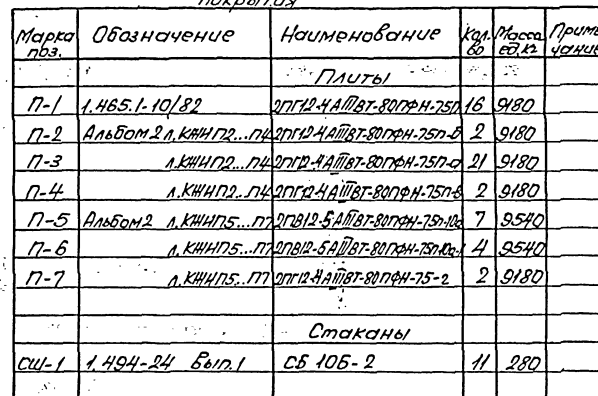 покрытия
Марка поз. Обозначение Наименование Кол. во Масса ед.кг Приме чание
Плиты
П-1 1.465.1-10/82 2ПГ12-4АIIIВТ-80ПФН-75П 16 9180
П-2 Альбом 2 л.КЖИП2...П4 2ПГ12-4АIIIВТ-80ПФН-75П-б 2 9180
П-3 л.КЖИП2...П4 2ПГ12-4АIIIВТ-80ПФН-75П-а 21 9180
П-4 л.КЖИП2...П4 2ПГ12-4АIIIВТ-80ПФН-75П-в 2 9180
П-5 Альбом 2 л.КЖИП5...П7 2ПВ12-5АIIIВТ-80ПФН-75П-10а 7 9540
П-6 л.КЖИП5...П7 2ПВ12-5АIIIВТ-80ПФН-75П-10а-1 4 9540
П-7 л.КЖИП5...П7 2ПГ12-4АIIIВТ-80ПФН-75-2 2 9180
Стаканы
СШ-1 1.494-24 Вып.1 СБ 10Б-2 11 280